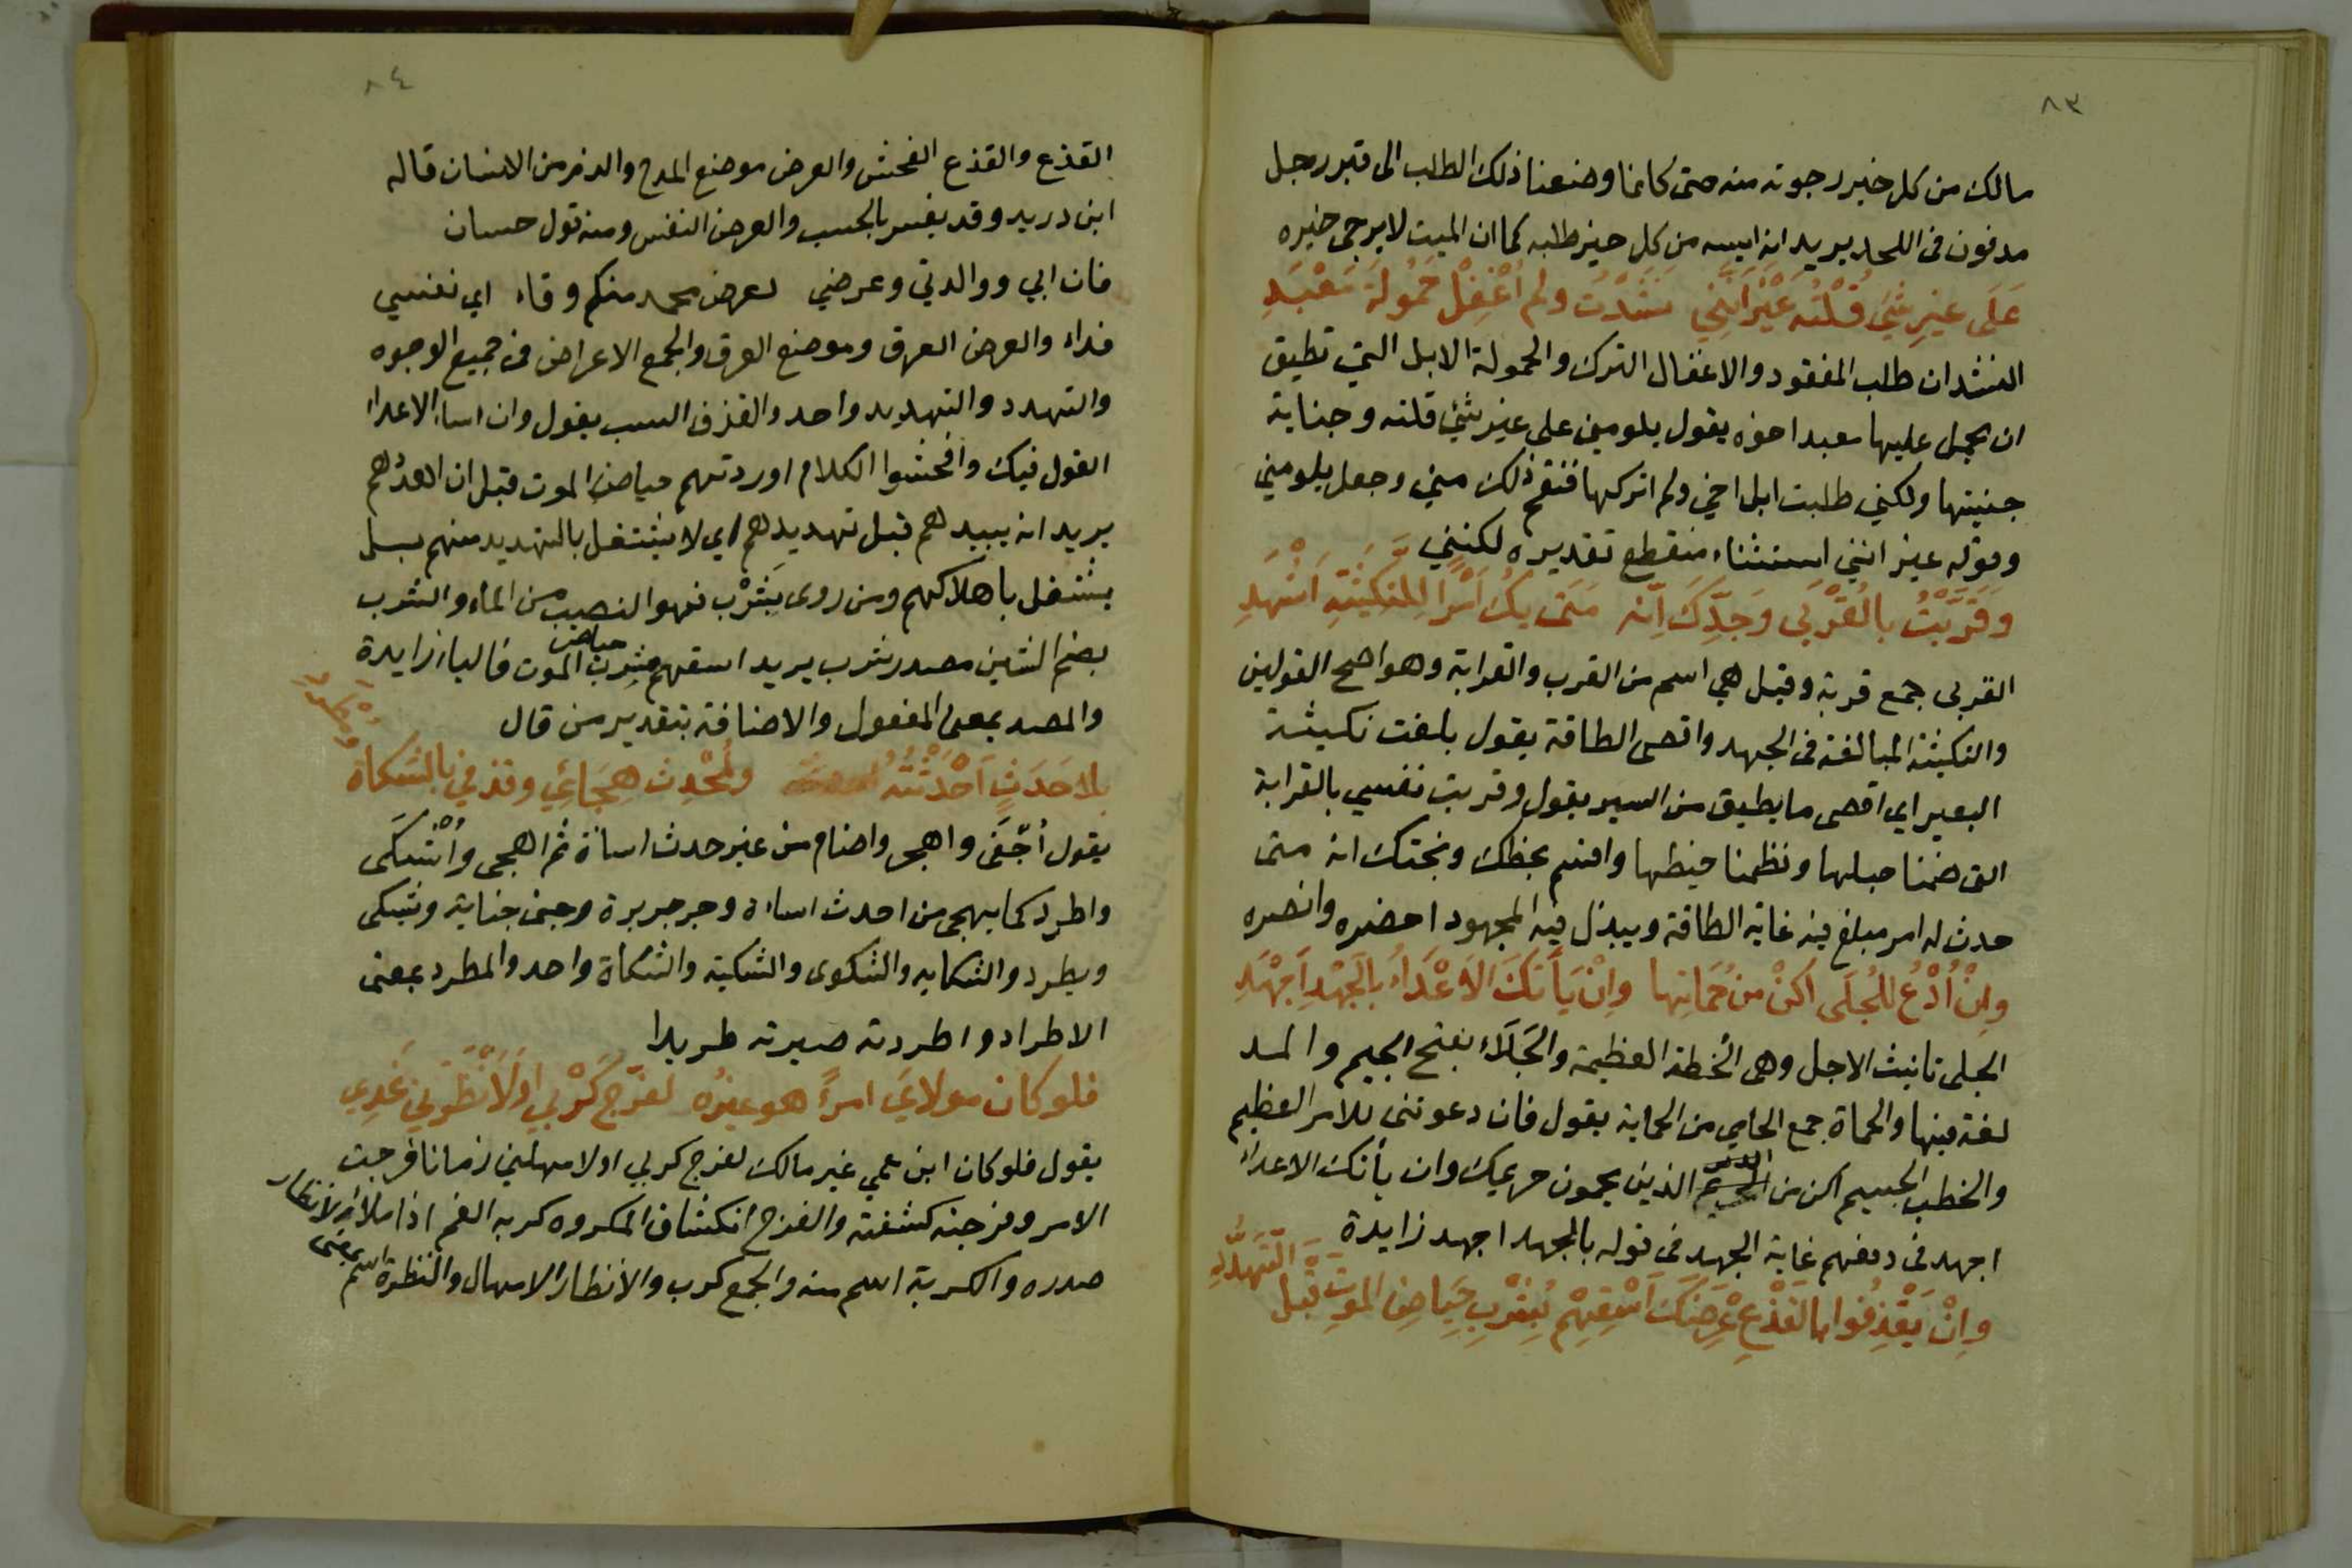 ٨٣
مالك من كل خير رجوته منه حتى كانما وضعنا ذلك الطلب الى قبر رجل
مدفون في اللحد يريد انه ايسه من كل خير طلبه كما ان الميت لا يرجى خيره
عَلَى غيرِ شيءٍ قُلْتُه غَيْرَ أَنَّنِي نَشَدْتُ ولم أُغْفِلْ حَمُولَةَ مَعْبَدِ
النشدان طلب المفقود والاغفال الترك والحمولة الابل التي تطيق
ان يحمل عليها معبد اخوه يقول يلومني على غير شئ قلته وجناية
جنيتها ولكني طلبت ابل اخي ولم اتركها فنقم ذلك مني وجعل يلومني
وقوله غير انني استثناء منقطع تقديره لكنني
وَقَرَّبْتُ بالقُرْبَى وَجَدِّكَ اِنَّه مَتَى يَكُ أَمْرٌ لِلنَّكِيثَةِ أَشْهَدِ
القربى جمع قربة وقيل هي اسم من القرب والقرابة وهو اصح القولين
والنكيثة المبالغة في الجهد واقصى الطاقة يقول بلغت نكيثة
البعير اي اقصى ما يطيق من السير يقول وقربت نفسي بالقرابة
التي ضمنا حبلها ونظمنا خيطها واقسم بحظك وبختك انه متى
حدث له امر مبلغ فيه غاية الطاقة ويبذل فيه المجهود احضره وانصره
وإِنْ أُدْعَ للجُلَّى أَكُنْ من حُمَاتِها وإِنْ يَأْتِكَ الأَعْدَاءُ بالجَهْدِ أَجْهَدِ
الجلى تانيث الاجل وهي الخطة العظيمة والجَلَاء بفتح الجيم والمد
لغة فيها والحماة جمع الحامي من الحماية يقول فان دعوتني للامر العظيم
والخطب الجسيم اكن من الذين يحمون حريمك وان يأتك الاعداء
اجهد في دفعهم غاية الجهد في قوله بالجهد اجهد زايدة
وإِنْ يَقْذِفُوا بالقَذْعِ عِرْضَكَ أَسْقِهِمْ بِشُرْبِ حِيَاضِ الموتِ قبل التَّهَدُّدِ
٨٤
القذع والقذع الفحش والعرض موضع المدح والذم من الانسان قاله
ابن دريد وقد يفسر بالحسب والعرض النفس ومنه قول حسان
فان ابي ووالدتي وعرضي لعرض محمد منكم وقاء اي نفسي
فداء والعرض العرق وموضع العرق والجمع الاعراض في جميع الوجوه
والتهدد والتهديد واحد والقذف السب يقول وان اساء الاعداء
القول فيك وافحشوا الكلام اوردتهم حياض الموت قبل ان اهددهم
يريد انه يبيدهم قبل تهديدهم اي لا يشتغل بالتهديد منهم بل
يشتغل باهلاكهم ومن روى بِشِرْب فهو النصيب من الماء والشرب
بضم الشين مصدر شرب يريد اسقهم شرب حياض الموت فالباء زايدة
والمصدر بمعنى المفعول والاضافة بتقدير من قال
بلا حَدَثٍ أَحْدَثْتُهُ وكمُحْدِثٍ هِجَائِي وقذفي بالشكاة ومُطْرَدِي
يقول اُجْفَى واهجر واضام من غير حدث اساءة ثم اهجى وأُشْكَى
واطرد كما يهجى من احدث اساءة وجر جريرة وجنى جناية ويشكى
ويطرد والشكاية والشكوى والشكية والشكاة واحد والمطرد بمعنى
الاطراد واطردته صيرته طريدا
فلو كان مولايَ امرءً هو غيرُه لفرَّجَ كَرْبي أو لأنظَرَني غَدِي
يقول فلو كان ابن عمي غير مالك لفرج كربي او لامهلني زمانا فرجت
الامر وفرجته كشفته والفرج انكشاف المكروه كربه الغم اذا ملا
صدره والكربة اسم منه والجمع كرب والانظار الامهال والنظرة اسم بمعنى الانظار